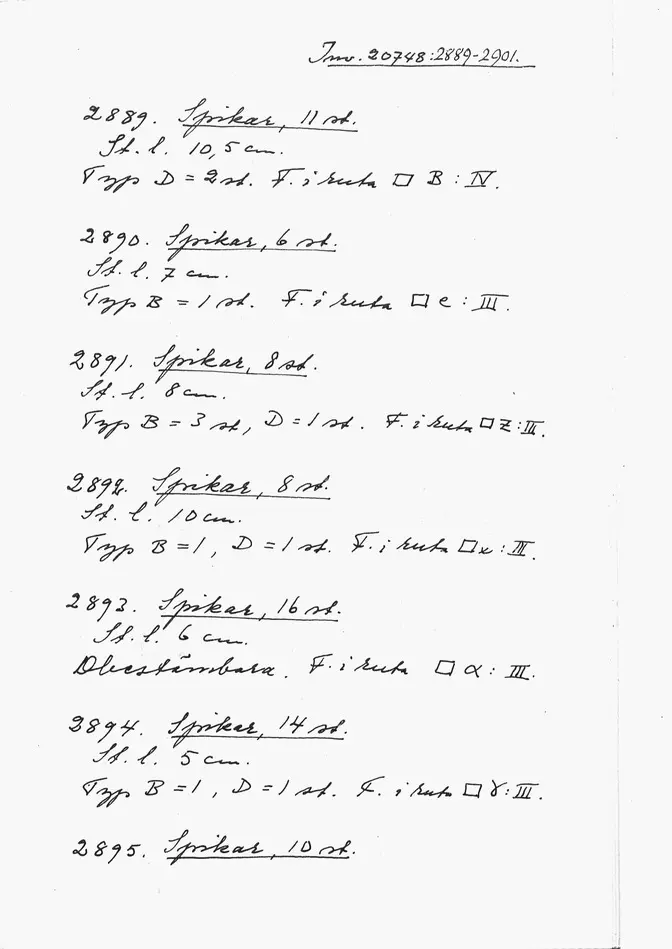 Inv. 20748:2889-2901.
2889. Spikar, 11 st.
St. l. 10,5 cm.
Typ D = 2 st. F. i ruta □ B : IV.
2890. Spikar, 6 st.
St. l. 7 cm.
Typ B = 1 st. F. i ruta □ e : III.
2891. Spikar, 8 st.
St. l. 8 cm.
Typ B = 3 st, D = 1 st. F. i ruta □ Z : III.
2892. Spikar, 8 st.
St. l. 10 cm.
Typ B = 1, D = 1 st. F. i ruta □ : III.
2893. Spikar, 16 st.
St. l. 6 cm.
Obestämbara. F. i ruta □ α : III.
2894. Spikar, 14 st.
St. l. 5 cm.
Typ B = 1, D = 1 st. F. i ruta □ γ : III.
2895. Spikar, 10 st.